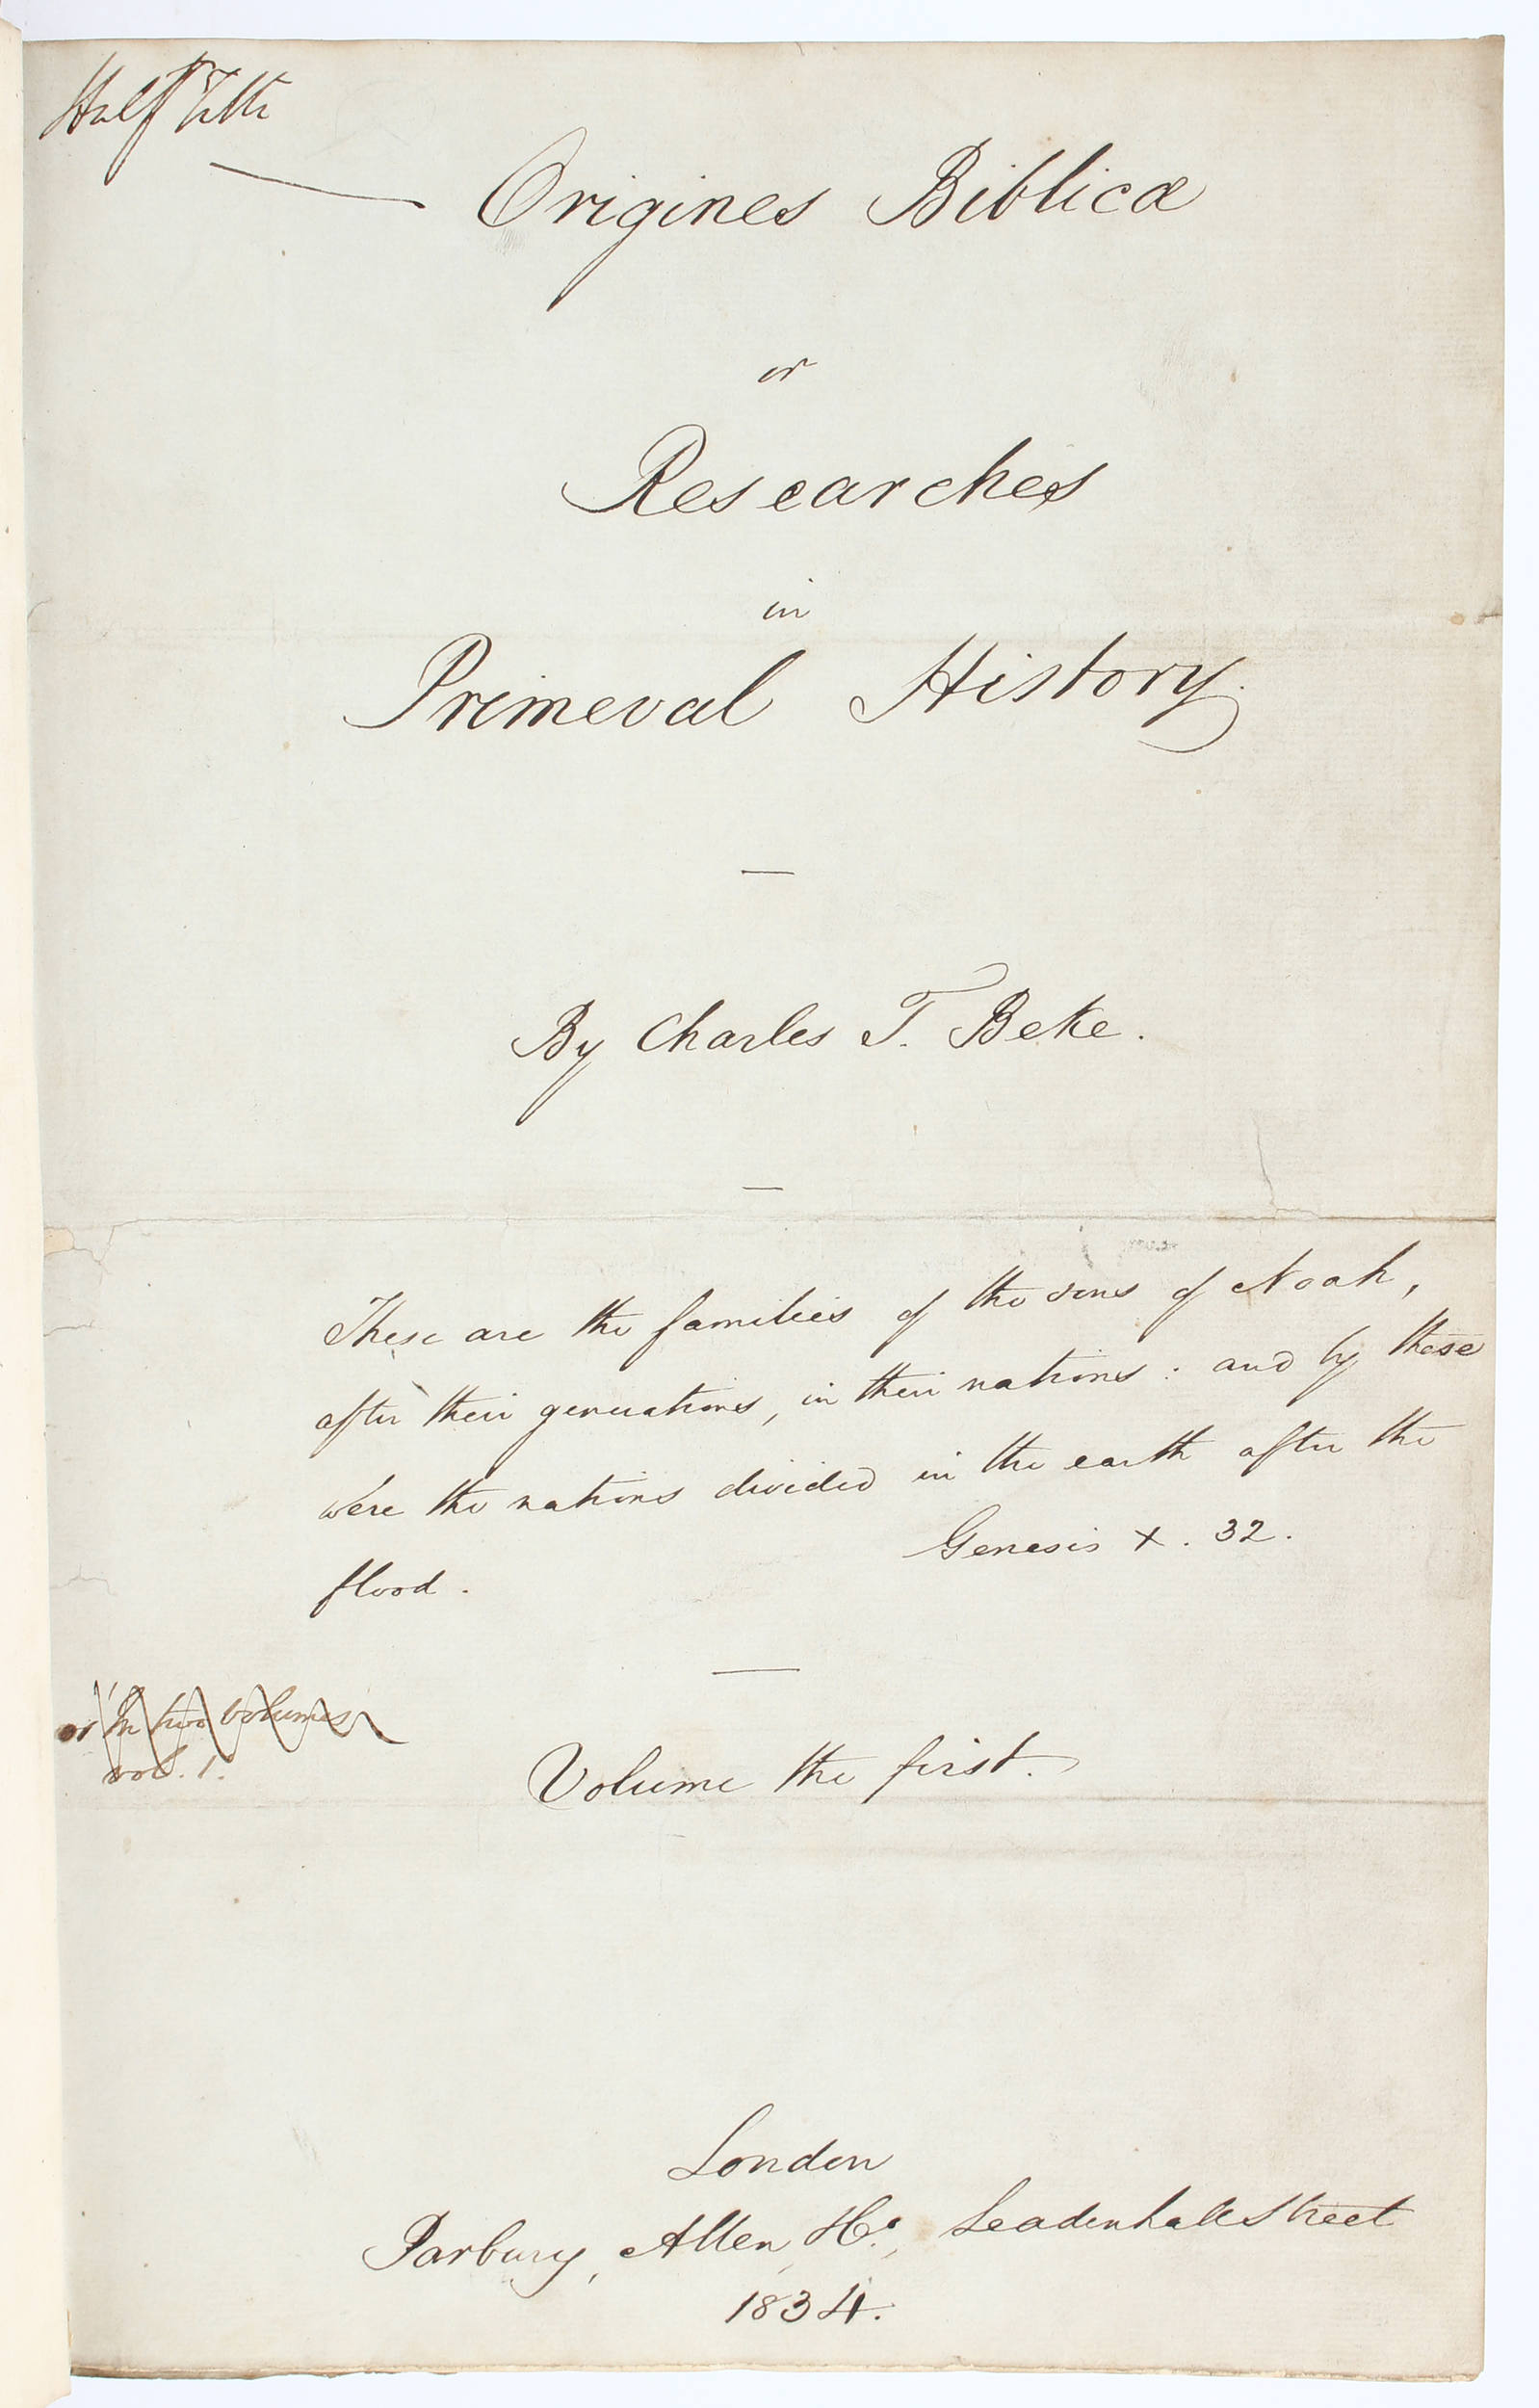 Half Title
Origines Biblicæ
or
Researches
in
Primeval History.
By Charles T. Beke.
These are the families of the sons of Noah,
after their generations, in their nations: and by these
were the nations divided in the earth after the
flood.
Genesis X. 32.
or In two volumes
vol. 1.
Volume the first.
London
Parbury, Allen, & Co., Leadenhall Street
1834.